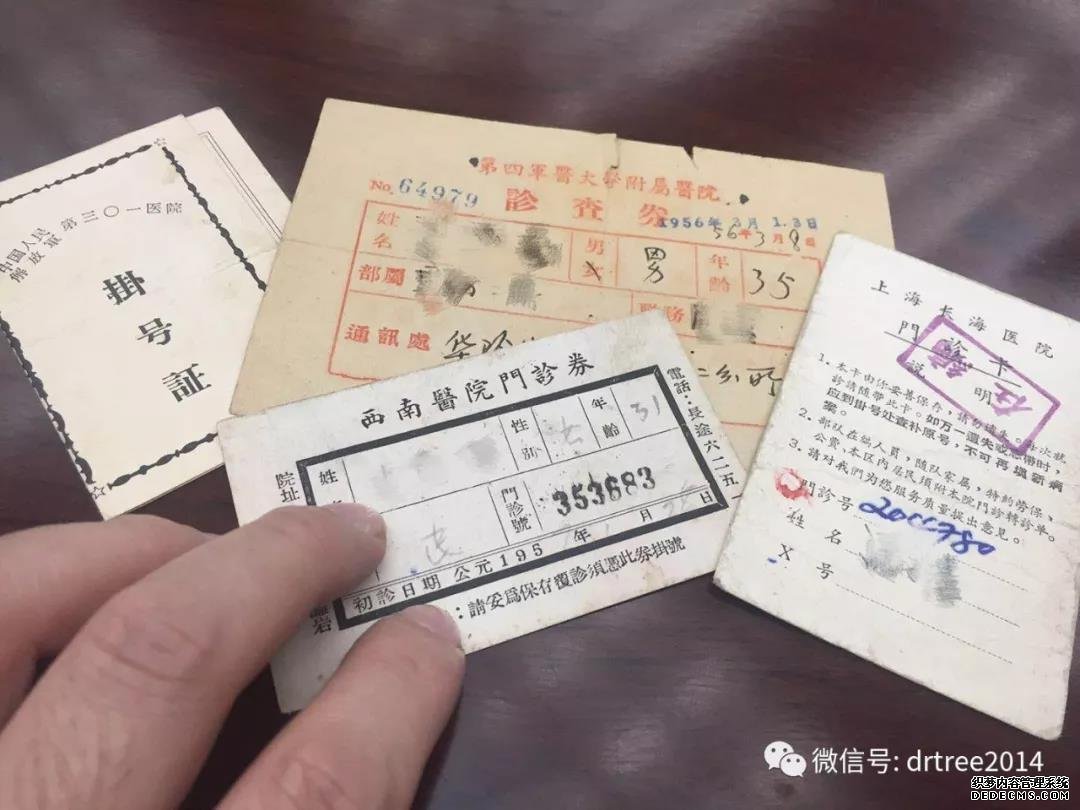 中国人民
解放軍第三〇一医院
掛号証
第四軍醫大學附属醫院
No. 64979
診查券
1956年3月13日
56年3月8日
姓名
男
女
男
年齡
35
部屬
職務
通訊處
西南醫院門診券
電話：長途六二五
院址
姓
性別
女
年齡
31
門診號
353683
初診日期 公元195 年 月 日
：請妥爲保存覆診須憑此券掛號
上海长海医院
門診卡
説明
1. 本卡由你妥善保存，請勿遺失。每次就
診請随带此卡。如万一遺失或忘带時，
应到掛号处查补原号，不可再填新病
案。
2. 部队在編人員，随队家属，特約勞保，
公費、本区内居民須附本院門診轉診单。
3. 請对我們为您服务质量提出意見。
門診号
姓名
X号
微信号: drtree2014
织梦内容管理系统
DEDECMS.COM